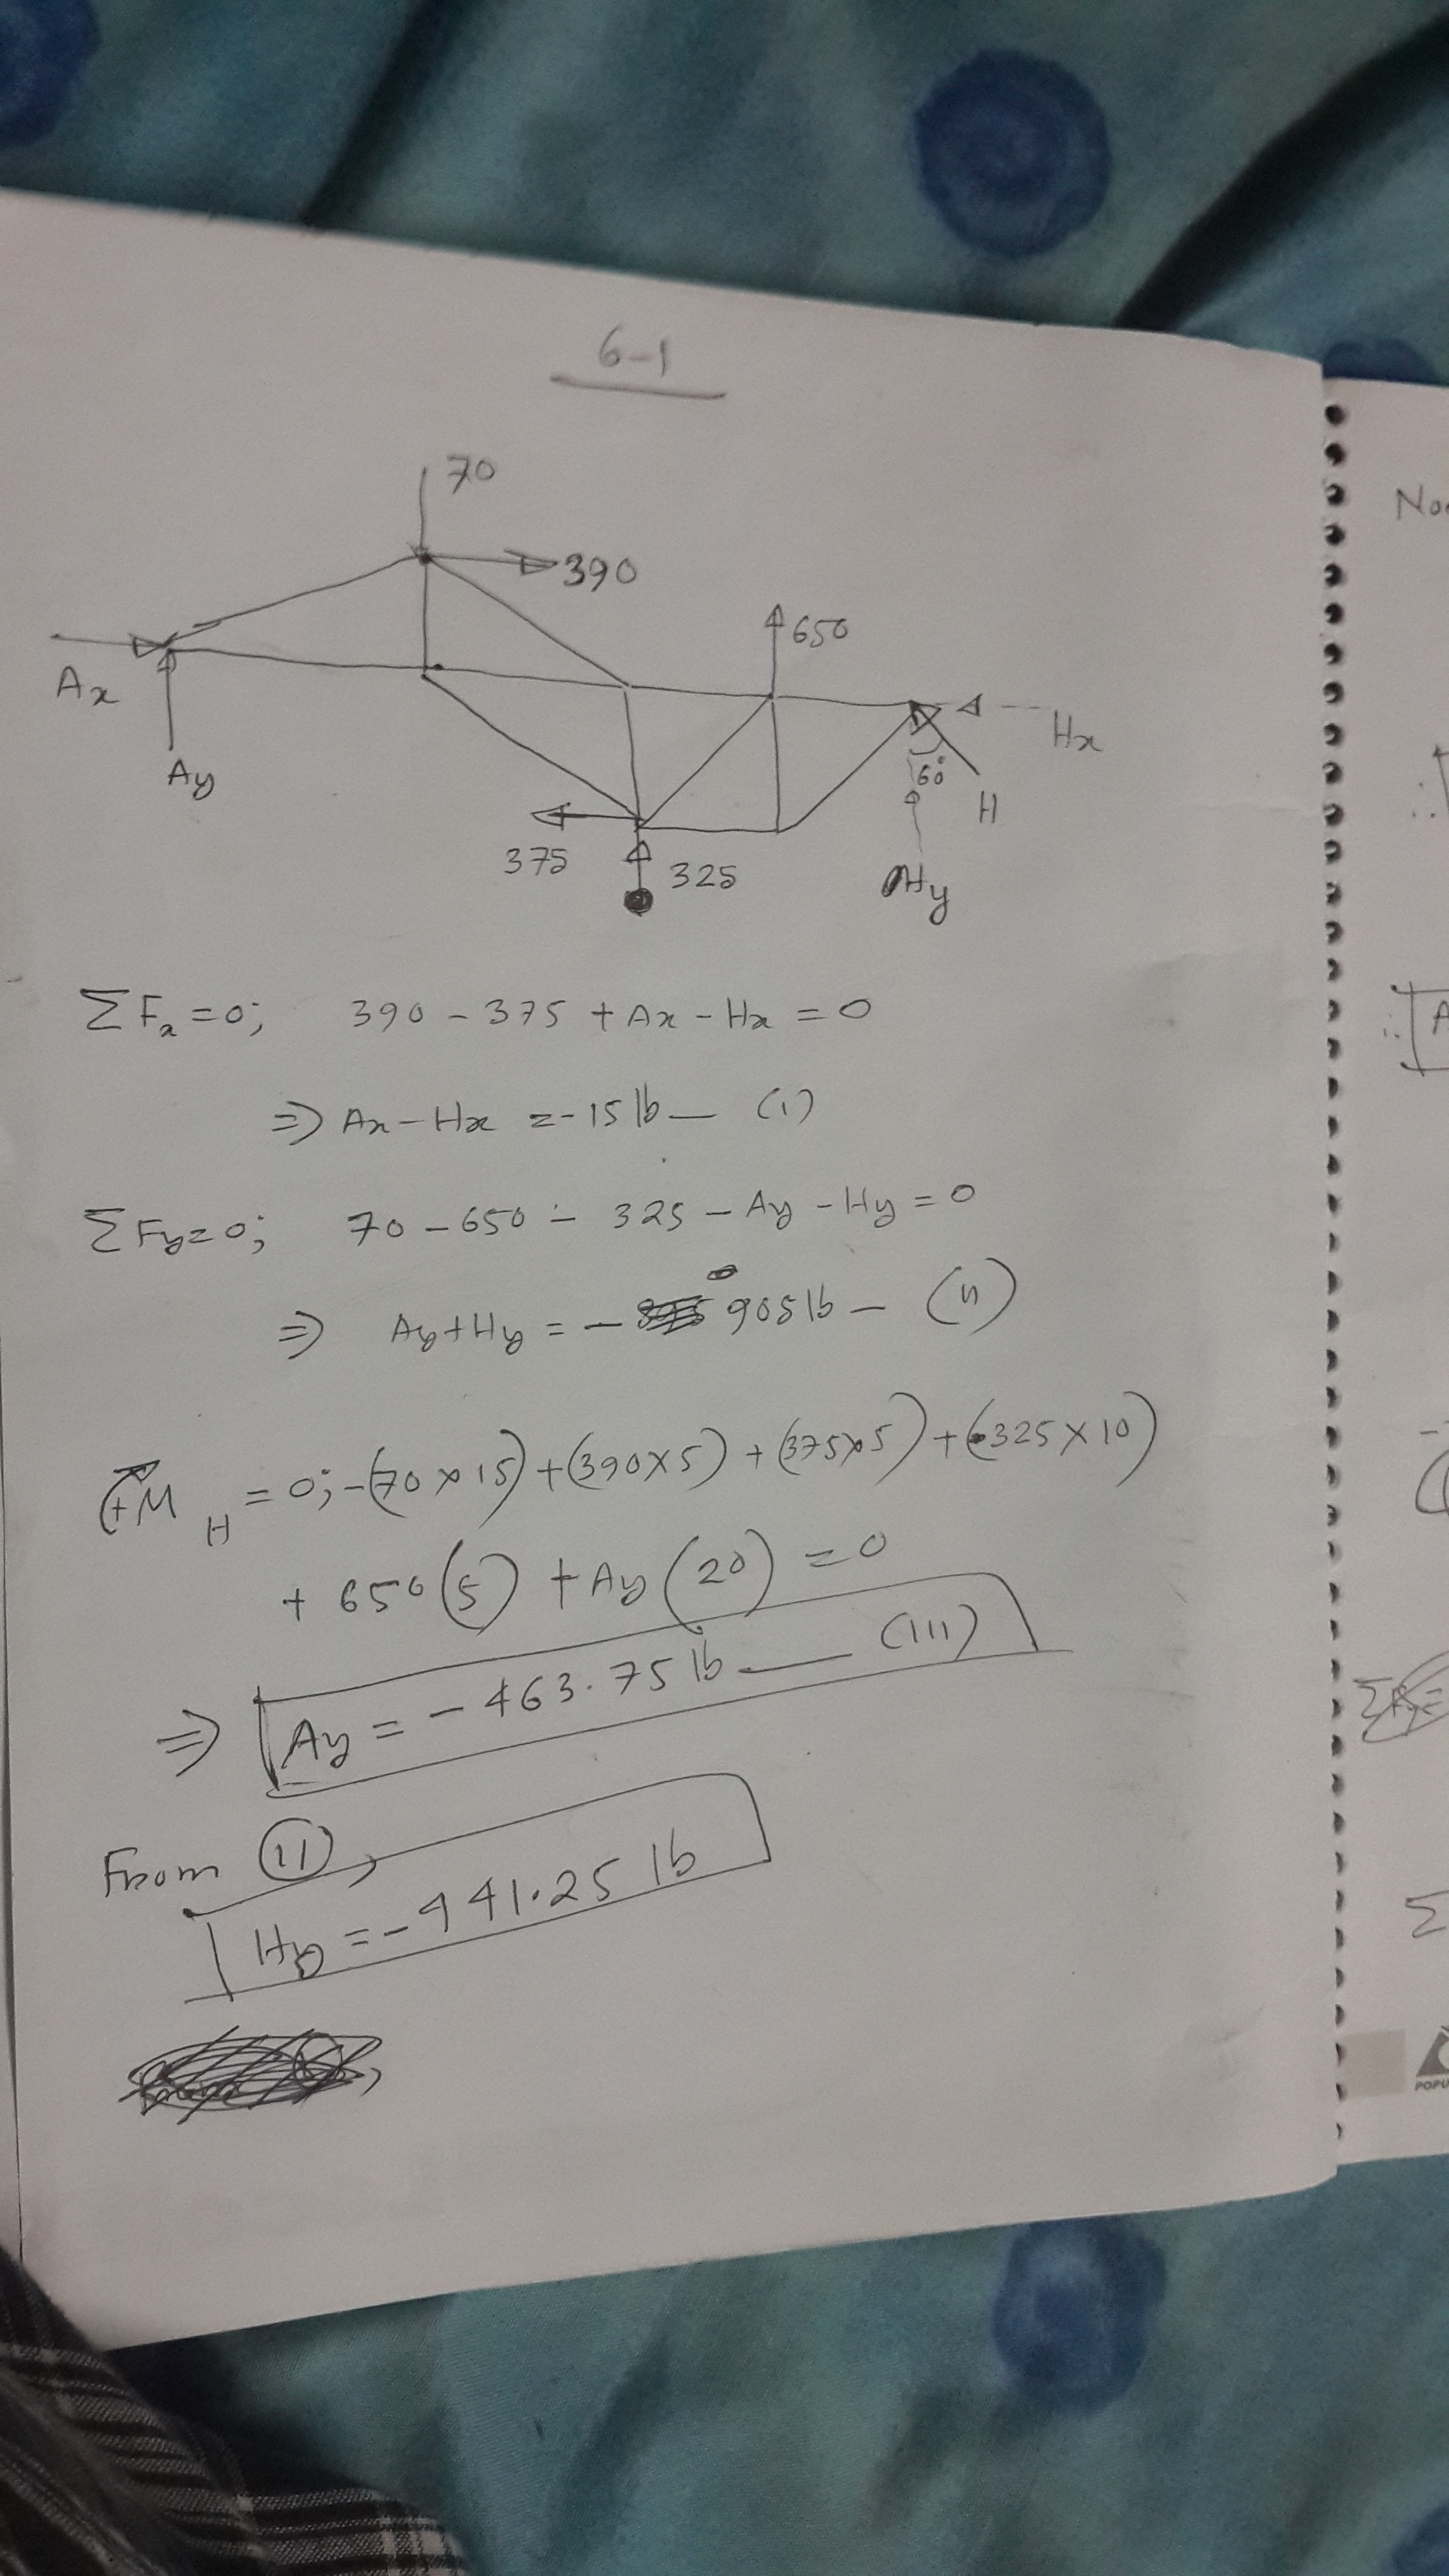 6-1
70
390
650
Ax
Ay
Hx
60°
H
Hy
375
325
ΣFx = 0; 390 - 375 + Ax - Hx = 0
⇒ Ax - Hx = -15 lb — (i)
ΣFy = 0; 70 - 650 - 325 - Ay - Hy = 0
⇒ Ay + Hy = - 905 lb — (ii)
(+M H = 0; -(70 × 15) + (390 × 5) + (375 × 5) + (325 × 10)
+ 650 (5) + Ay (20) = 0
⇒ Ay = - 463.75 lb — (iii)
From (ii),
Hy = - 441.25 lb
No
A
Σ
POPU